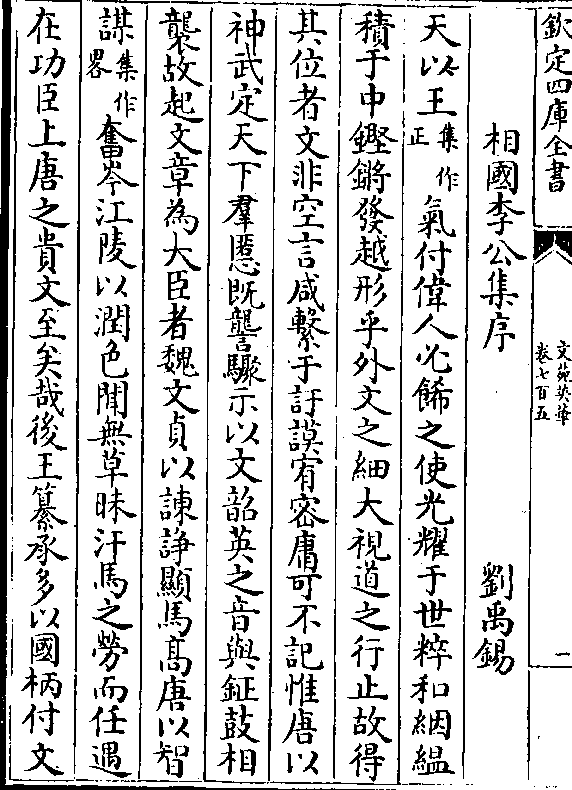 欽定四庫全書
文苑英華
卷七百五
一
相國李公集序
劉禹錫
天以王集作正氣付偉人必餙之使光耀于世粹和絪縕
積于中鏗鏘發越形乎外文之細大視道之行止故得
其位者文非空言咸繫于訏謨宥密庸可不記惟唐以
神武定天下羣慝既讋驟示以文韶英之音與鉦鼓相
襲故起文章為大臣者魏文貞以諫諍顯馬髙唐以智
謀集作畧奮岑江陵以潤色聞無草昧汗馬之勞而任遇
在功臣上唐之貴文至矣哉後王纂承多以國柄付文